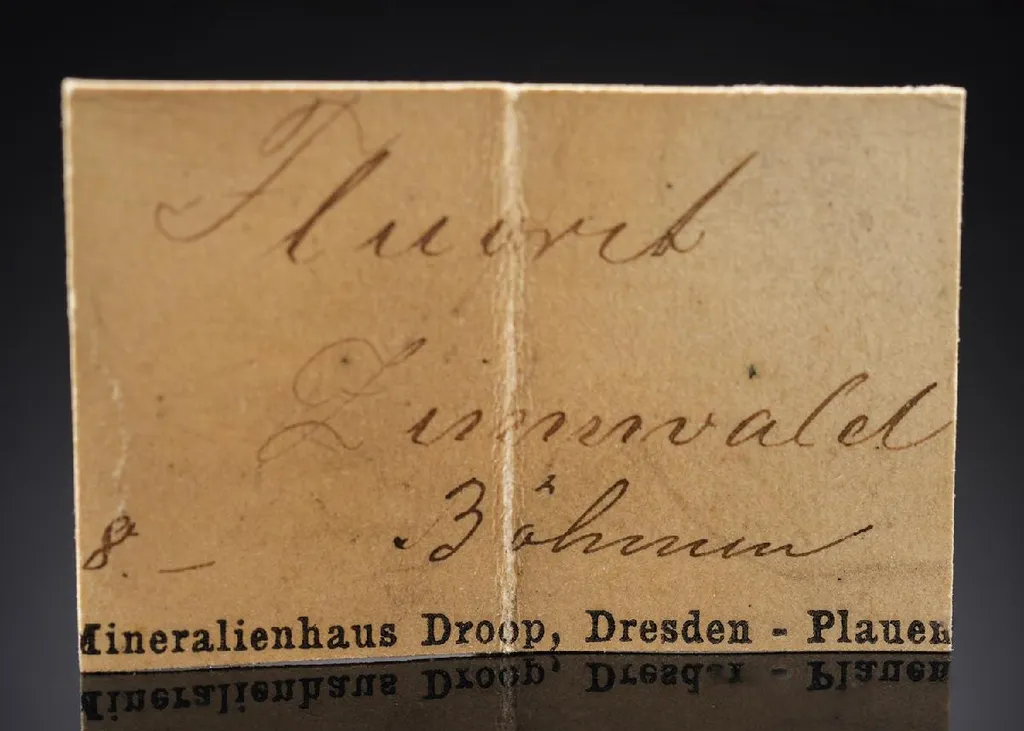 Fluorit
Zinnwald
Böhmen
8. –
Mineralienhaus Droop, Dresden - Plauen